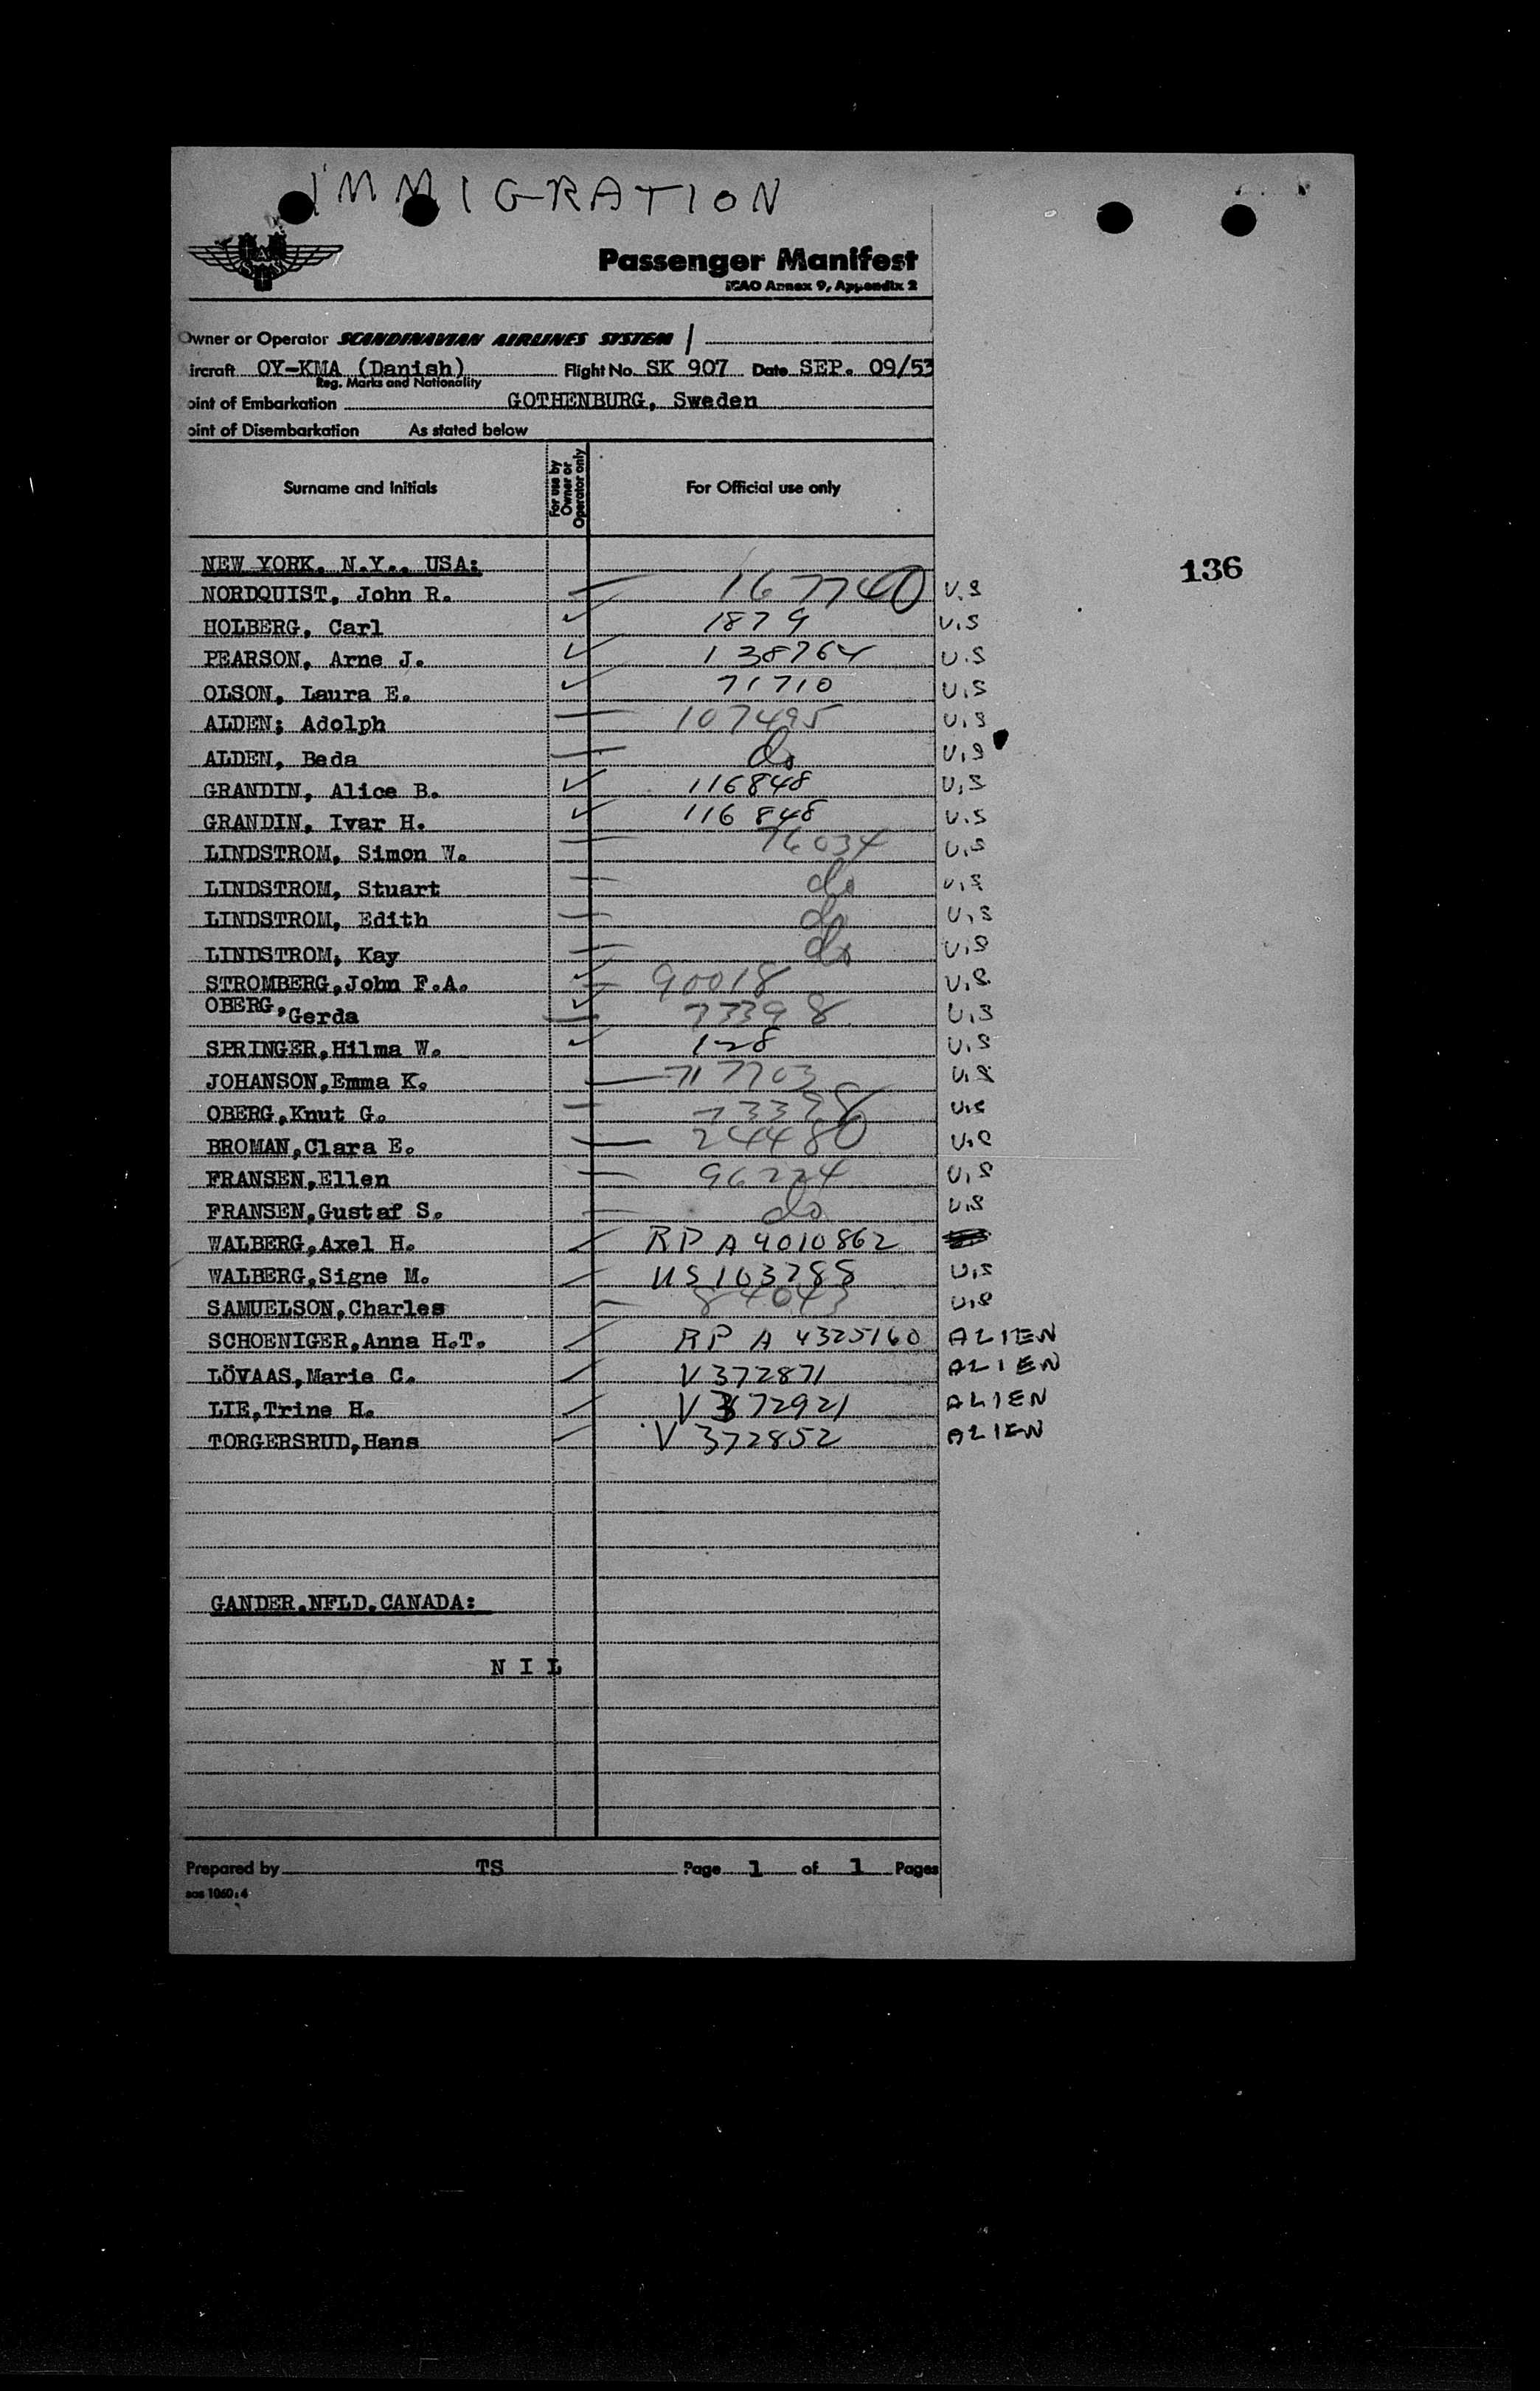 IMMIGRATION
Passenger Manifest
ICAO Annex 9, Appendix 2
Owner or Operator SCANDINAVIAN AIRLINES SYSTEM
ircraft OY-KMA (Danish) Flight No. SK 907 Date SEP. 09/53
Reg. Marks and Nationality
oint of Embarkation GOTHENBURG, Sweden
oint of Disembarkation As stated below
Surname and Initials For use by Owner or Operator only For Official use only
NEW YORK, N.Y., USA:
136
NORDQUIST, John R. 167740 U.S
HOLBERG, Carl 1879 U.S
PEARSON, Arne J. 138764 U.S
OLSON, Laura E. 71710 U.S
ALDEN; Adolph 107495 U.S
ALDEN, Beda do U.S
GRANDIN, Alice B. 116848 U.S
GRANDIN, Ivar H. 116848 U.S
LINDSTROM, Simon W. 76034 U.S
LINDSTROM, Stuart do U.S
LINDSTROM, Edith do U.S
LINDSTROM, Kay do U.S
STROMBERG,John F.A. 90018 U.S
OBERG,Gerda U.S
SPRINGER,Hilma W. 128 U.S
JOHANSON,Emma K. U.S
OBERG,Knut G. U.S
BROMAN,Clara E. 244480 U.S
FRANSEN,Ellen 96224 U.S
FRANSEN,Gustaf S. do U.S
WALBERG,Axel H. RP A4010862
WALBERG,Signe M. US103788 U.S
SAMUELSON,Charles 84043 U.S
SCHOENIGER,Anna H.T. RP A 4325160 ALIEN
LÖVAAS,Marie C. V 372871 ALIEN
LIE,Trine H. V 372921 ALIEN
TORGERSRUD,Hans V 372852 ALIEN
GANDER.NFLD.CANADA:
N I L
Prepared by TS Page 1 of 1 Pages
sas 1060:4